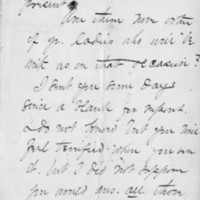 present
Are there now other
of yr. ladies who will be
with us on that occasion?
I sent you some days
since a blank for report
& do not doubt but you will
feel terrified when you see
it. but I did not suppose
you would ans. all those